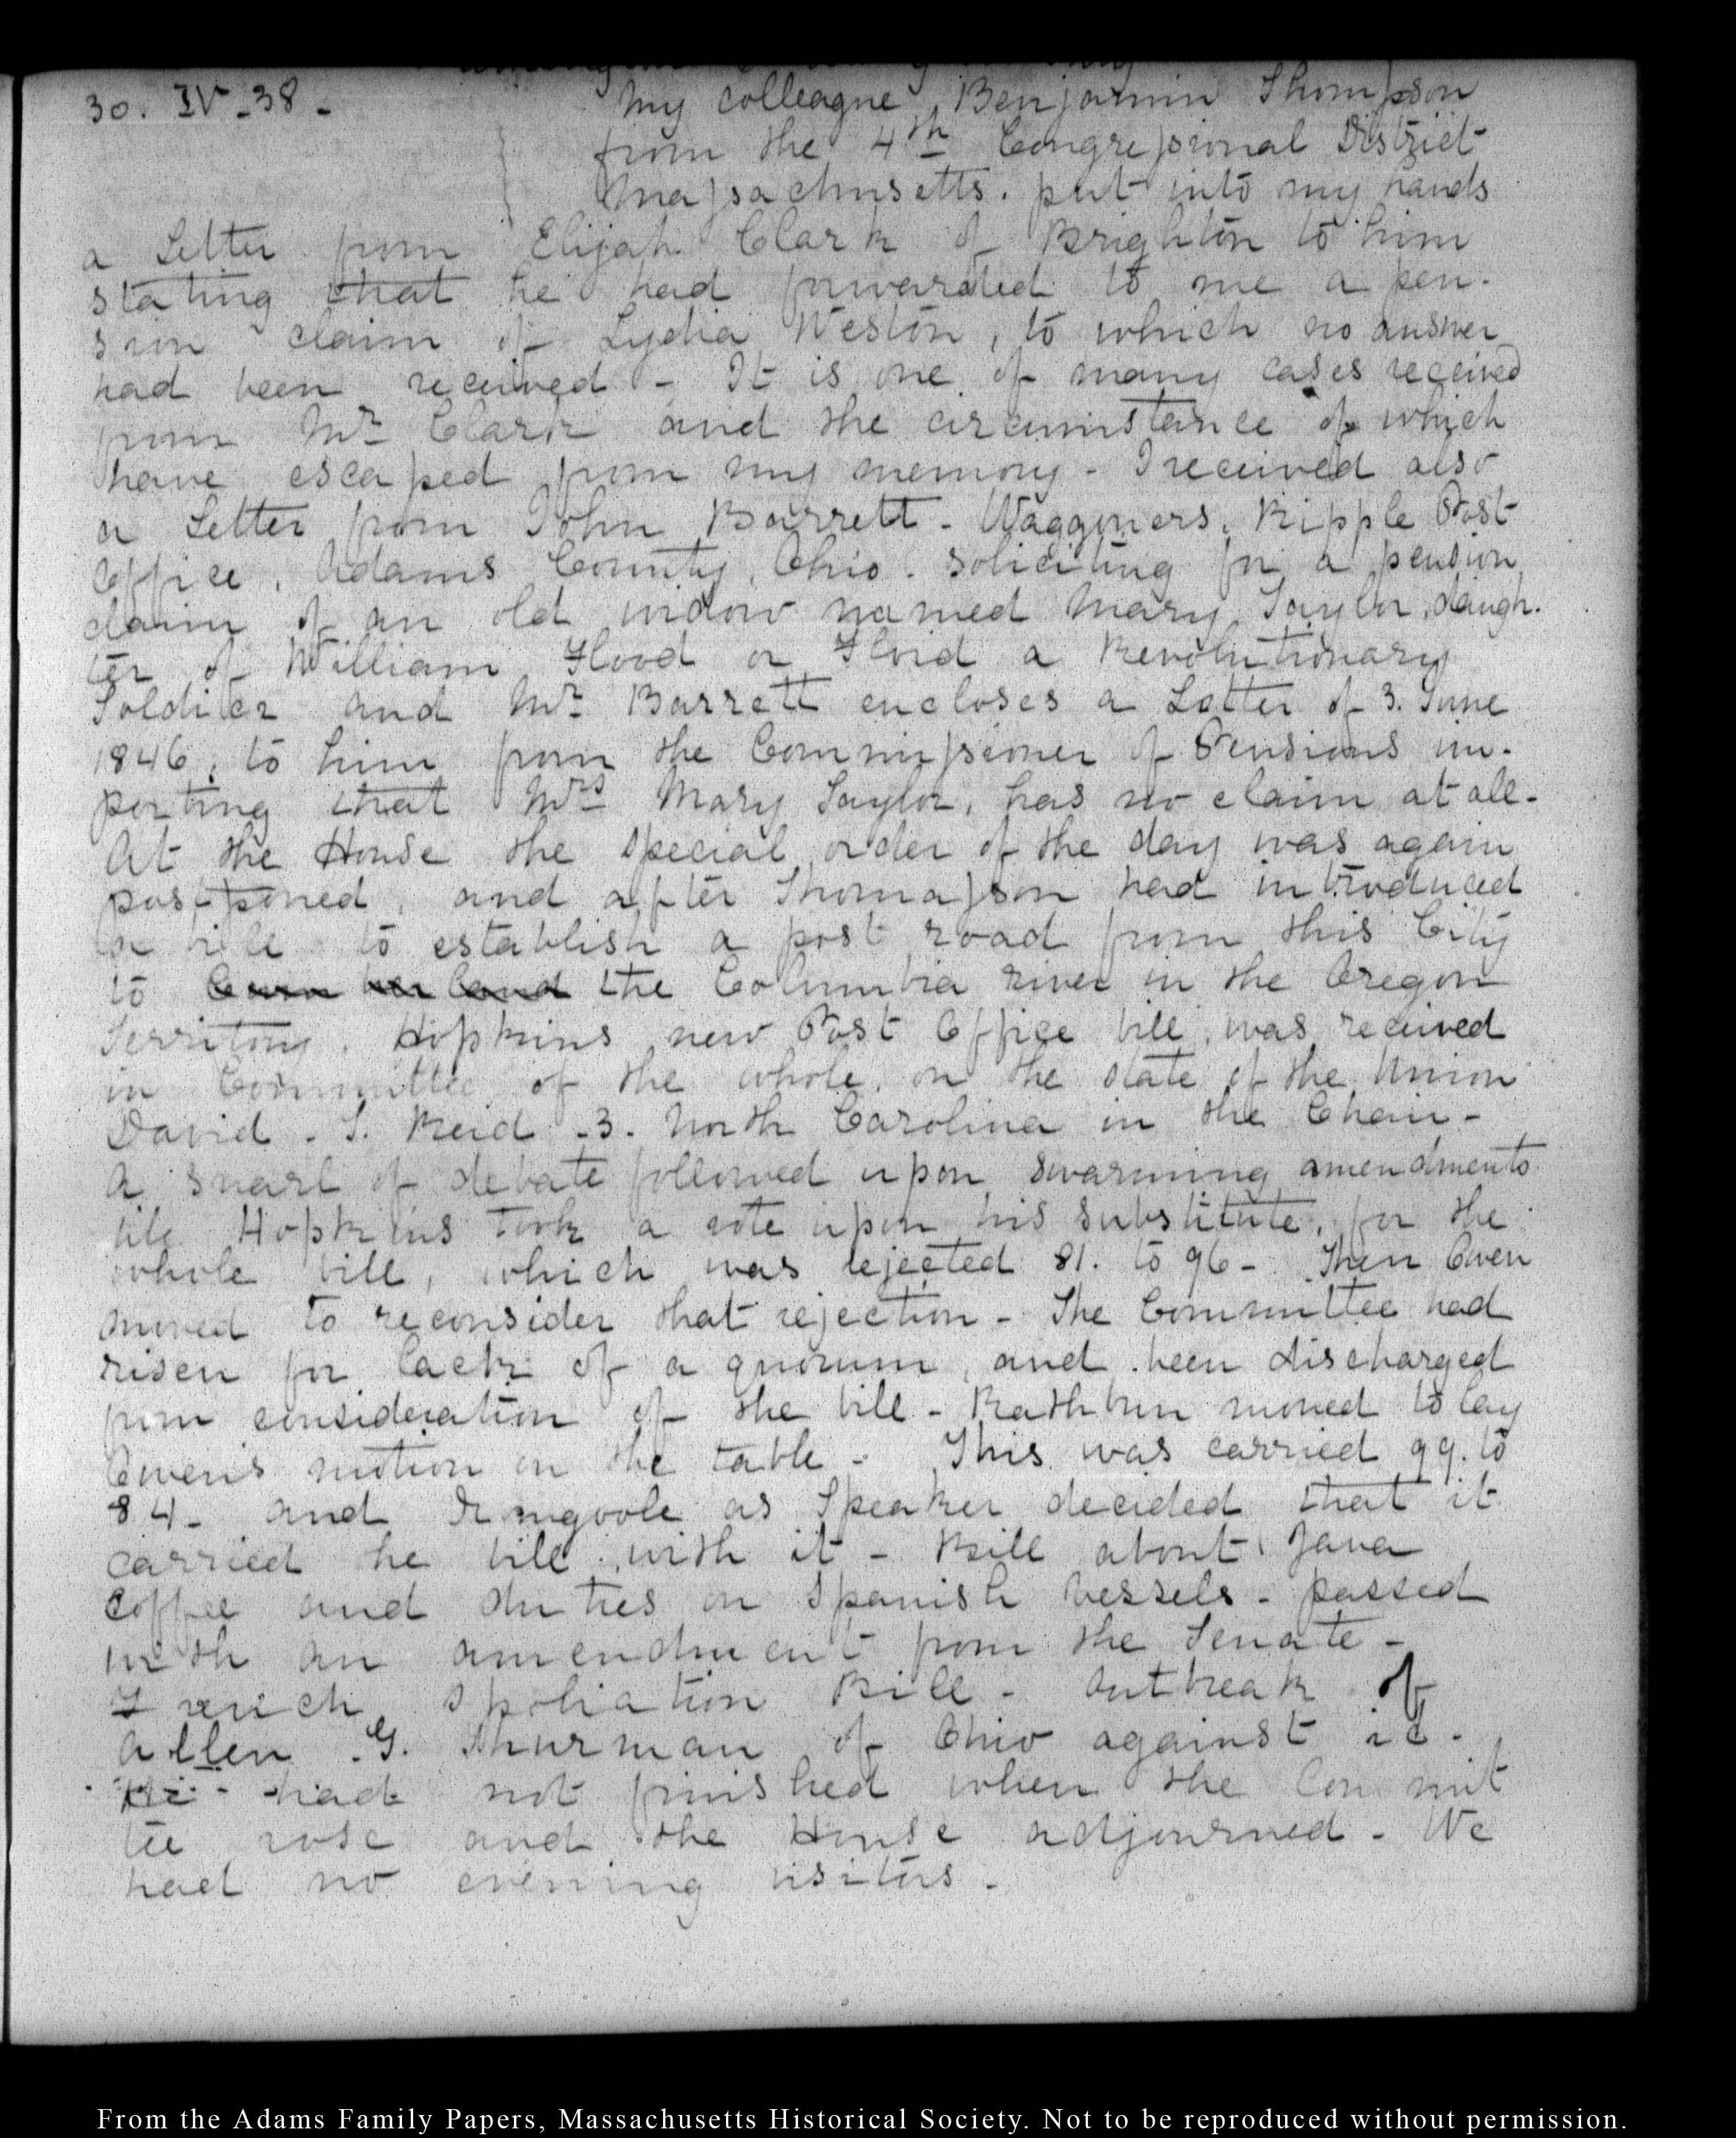 30. IV - 38 -
My colleague, Benjamin Thompson
from the 4th Congressional District
Massachusetts. put into my hands
a Letter from Elijah Clark of Brighton to him
stating that he had forwarded to me a pen-
sion claim of Lydia Weston, to which no answer
had been received - It is one of many cases received
from Mr Clark and the circumstance of which
have escaped from my memory - I received also
a Letter from John Barrett - Waggoners, Ripple Post
Office, Adams County, Ohio. soliciting for a pension
claim of an old widow named Mary Taylor, daugh-
ter of William Flood or Floid a Revolutionary
Soldier and Mr Barrett encloses a Letter of 3. June
1846, to him from the Commissioner of Pensions im-
porting that Mrs Mary Taylor, has no claim at all -
At the House the special order of the day was again
postponed, and after Thomasson had introduced
a bill to establish a post road from this City
to Cumberland the Columbia river in the Oregon
Territory. Hopkins new Post Office bill, was received
in Committee of the whole, on the state of the Union
David - S. Reid - 3. North Carolina in the Chair -
A snarl of debate followed upon swarming amendments
till Hopkins took a vote upon his substitute, for the
whole bill, which was rejected 81. to 96 - Then Owen
moved to reconsider that rejection - The Committee had
risen for lack of a quorum, and been discharged
from consideration of the bill - Rathbun moved to lay
Owen's motion on the table - This was carried 99. to
84 - and as Speaker decided that it
carried the bill with it - Bill about Java
Coffee and duties on Spanish vessels - passed
with an amendment from the Senate -
French Spoliation Bill - Outbreak of
Allen - G. Thurman of Ohio against it -
He had not finished when the Commit
tee rose and the House adjourned - We
had no evening visitors -
From the Adams Family Papers, Massachusetts Historical Society. Not to be reproduced without permission.